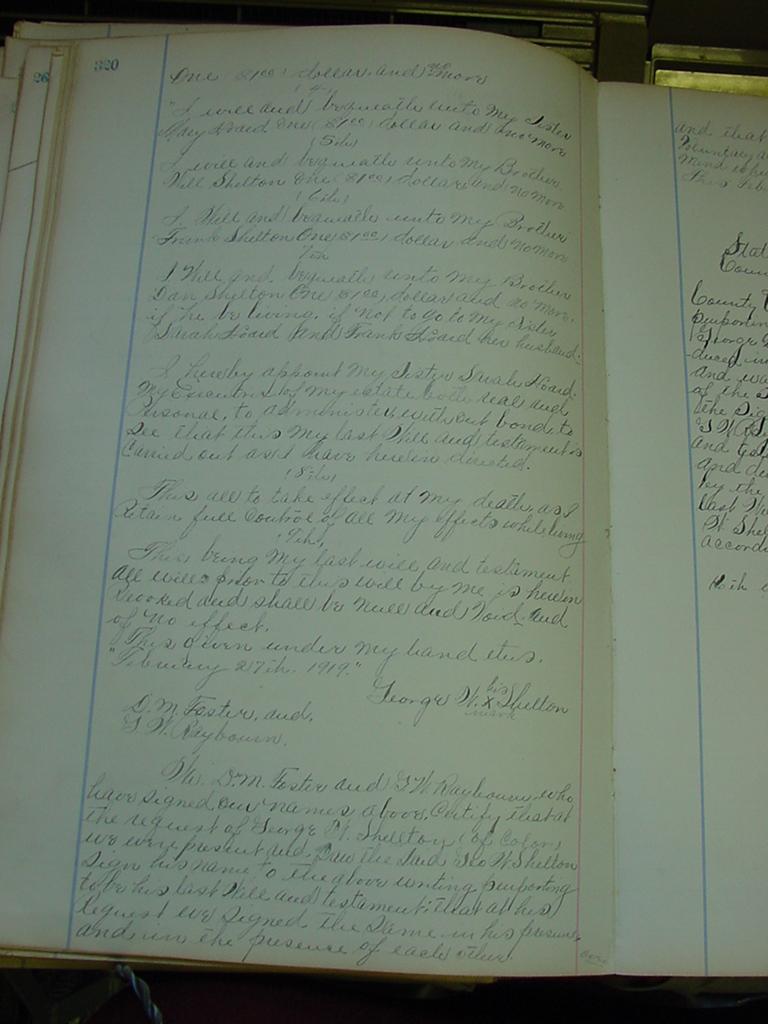 320
26
One ($1.00) dollar and no more
(4)
"I will and bequeath unto my Sister
Mary Hoard One ($1.00) dollar and no more
(5th)
I will and bequeath unto My Brother
Will Shelton One ($1.00) dollar and no more
(6th)
I Will and bequeath unto My Brother
Frank Shelton One $1.00, dollar and no more
7th
I Will and bequeath unto My Brother
Dan Shelton One $1.00, dollar and no more.
if he be living, if not to go to My Sister
Sarah Hoard and Frank Hoard her husband.
I hereby appoint My Sister Sarah Hoard
My Executrix of my estate both real and
Personal, to administer without bond, to
see that this My last Will and testament is
Carried out as I have herein directed.
(8th)
This all to take effect at my death, as I
retain full control of all My effects while living
9th,
This being My last will and testament
All wills prior to this will by me is herein
revoked and shall be null and void and
of no effect.
This given under my hand this,
"February 27th. 1919."
George W. his X mark Shelton
D. M. Foster, and,
G. W. Raybourn.
We. D. M. Foster and G W Raybourn, who
have signed our names above, Certify that at
the request of George W. Shelton (of Color)
we were present and saw the said Geo W Shelton
sign his name to the above writing purporting
to be his last Will and testament: that at his
request we signed the same in his presence,
and in the presence of each other.
and that
Voluntary a
mind
This Feb
Stat
Coun
County
purportin
George
duced in
and wa
of the S
the Sig
G W R
and tes
and de
by the
last Wi
W Shel
accordi